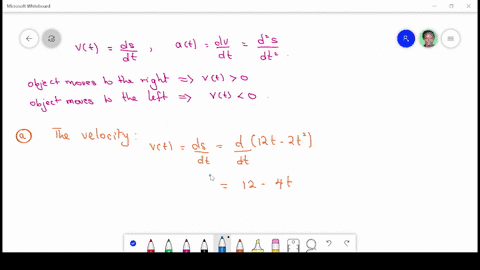 Microsoft Whiteboard
v(t) = ds/dt , a(t) = dv/dt = d²s/dt² .
object moves to the right => v(t) > 0
object moves to the left => v(t) < 0 .
(a) The velocity: v(t) = ds/dt = d/dt (12t - 2t²)
= 12 - 4t